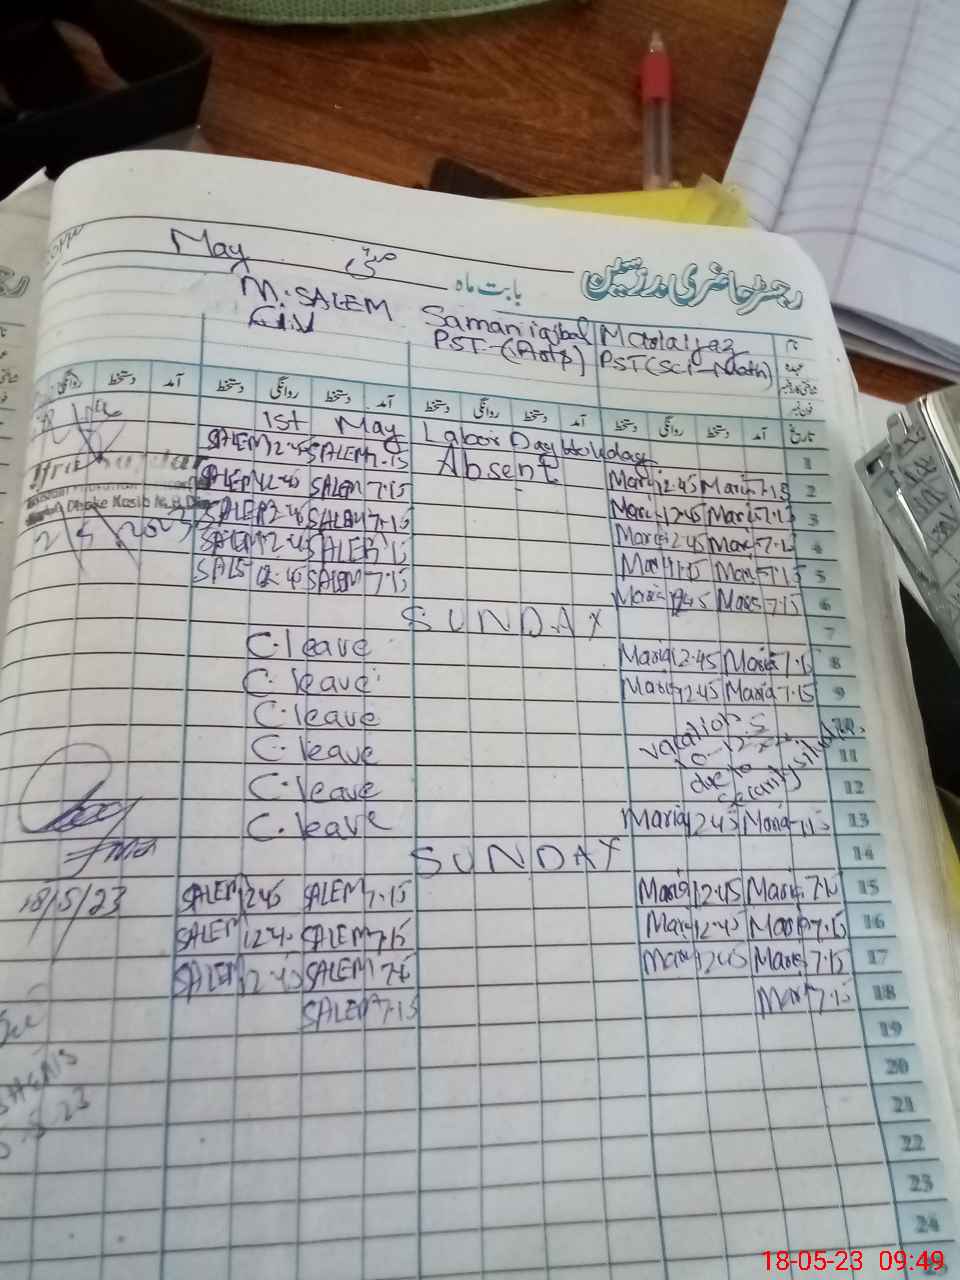 May مئی
رجسٹر حاضری مدرسین بابت ماہ
M. SALEM Saman iqbal Maria ijaz
C-IV PST-(Arts) PST (Sci-Math)
روانگی دستخط آمد دستخط روانگی دستخط آمد دستخط روانگی دستخط آمد دستخط روانگی دستخط آمد تاریخ
1st May Labor Day Holiday 1
SALEM 12.45 SALEM 7.15 Absent Maria 12.45 Maria 7.15 2
SALEM 12.45 SALEM 7.15 Maria 12.45 Maria 7.15 3
SALEM 12.45 SALEM 7.15 Maria 12.45 Maria 7.15 4
2/5/2023 SALEM 12.45 SALEM 7.15 Maria 11.15 Maria 7.15 5
SALEM 12.45 SALEM 7.15 Maria 12.45 Maria 7.15 6
SUNDAY 7
C. leave Maria 12.45 Maria 7.15 8
C. leave Maria 12.45 Maria 7.15 9
C. leave vacations 10
C. leave 10-12 11
C. leave due to security 12
C. leave Maria 12.45 Maria 7.15 13
SUNDAY 14
18/5/23 SALEM 12.45 SALEM 7.15 Maria 12.45 Maria 7.15 15
SALEM 12.45 SALEM 7.15 Maria 12.45 Maria 7.15 16
SALEM 12.45 SALEM 7.15 Maria 12.45 Maria 7.15 17
SALEM 7.15 Maria 7.15 18
19
20
21
22
23
24
18-05-23 09:49